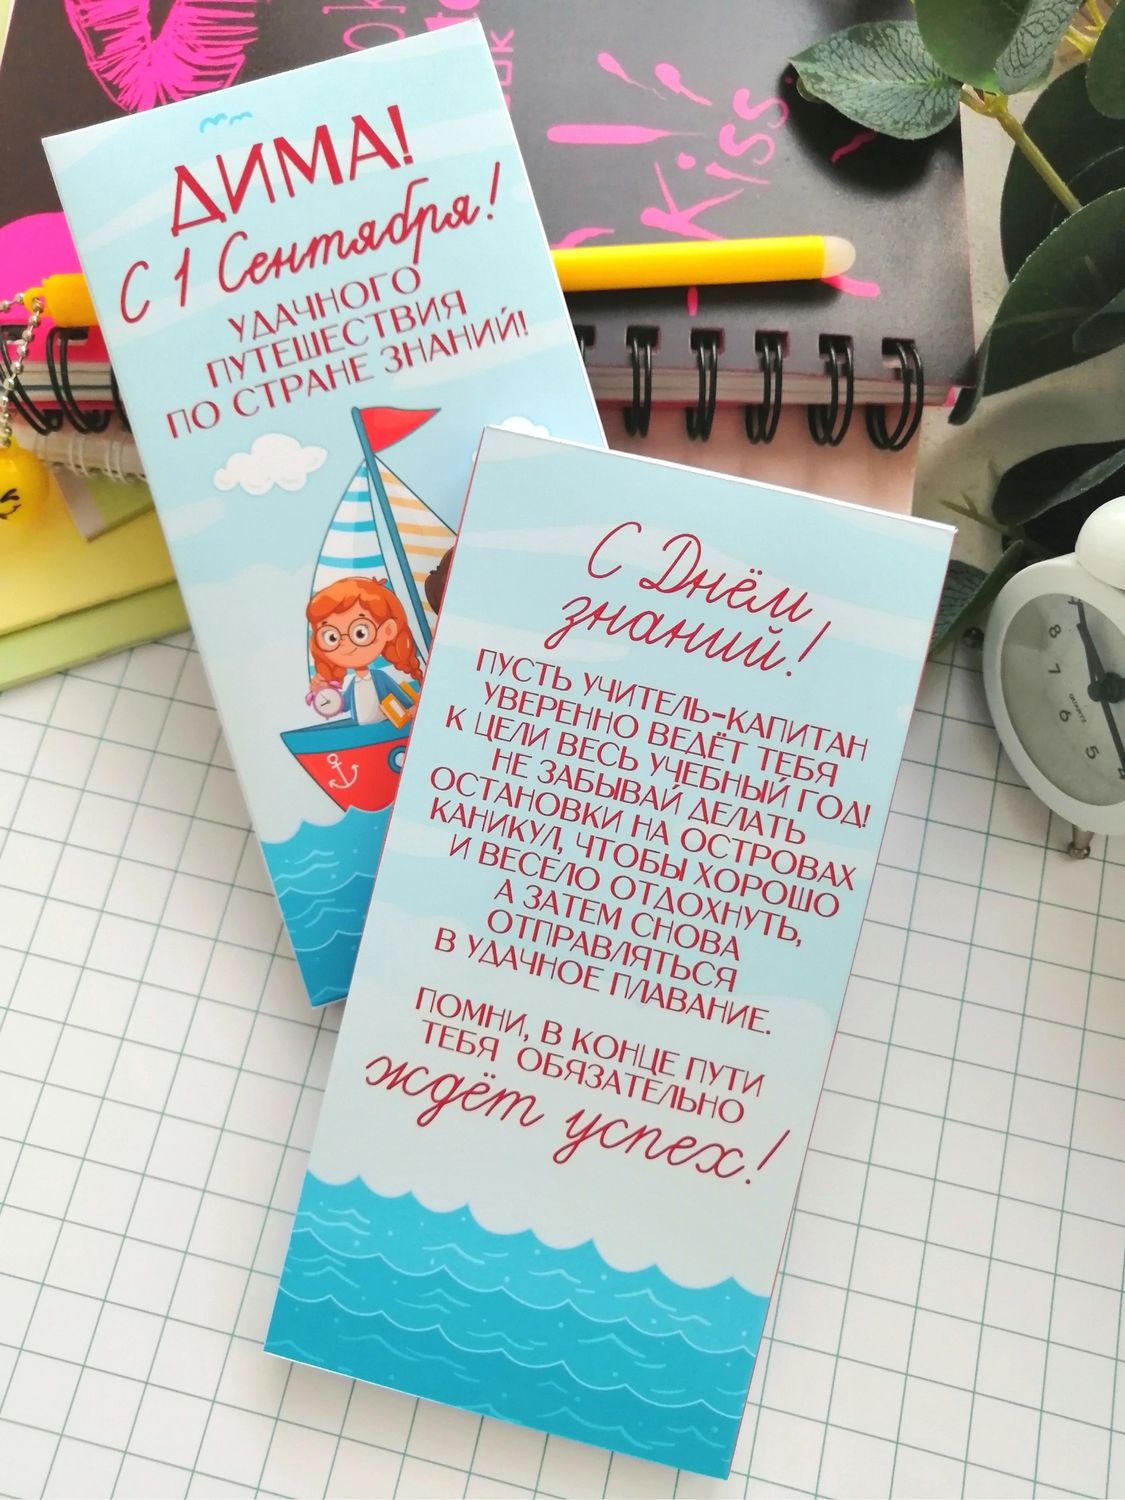 ДИМА!
С 1 Сентября!
УДАЧНОГО
ПУТЕШЕСТВИЯ
ПО СТРАНЕ ЗНАНИЙ!
С Днём
знаний!
ПУСТЬ УЧИТЕЛЬ-КАПИТАН
УВЕРЕННО ВЕДЁТ ТЕБЯ
К ЦЕЛИ ВЕСЬ УЧЕБНЫЙ ГОД!
НЕ ЗАБЫВАЙ ДЕЛАТЬ
ОСТАНОВКИ НА ОСТРОВАХ
КАНИКУЛ, ЧТОБЫ ХОРОШО
И ВЕСЕЛО ОТДОХНУТЬ,
А ЗАТЕМ СНОВА
ОТПРАВЛЯТЬСЯ
В УДАЧНОЕ ПЛАВАНИЕ.
ПОМНИ, В КОНЦЕ ПУТИ
ТЕБЯ ОБЯЗАТЕЛЬНО
ждёт успех!
Kiss
8
7
6
5
QUARTZ